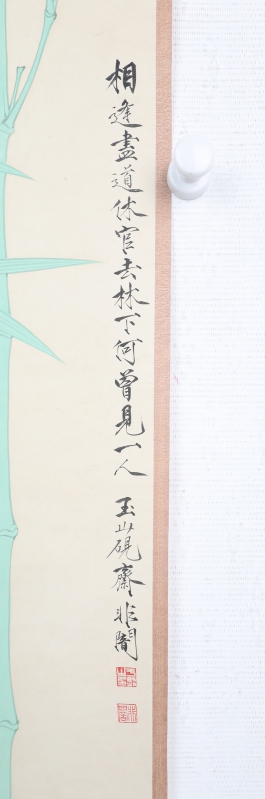 相逢盡道休官去林下何曾見一人 玉山硯齋非闇